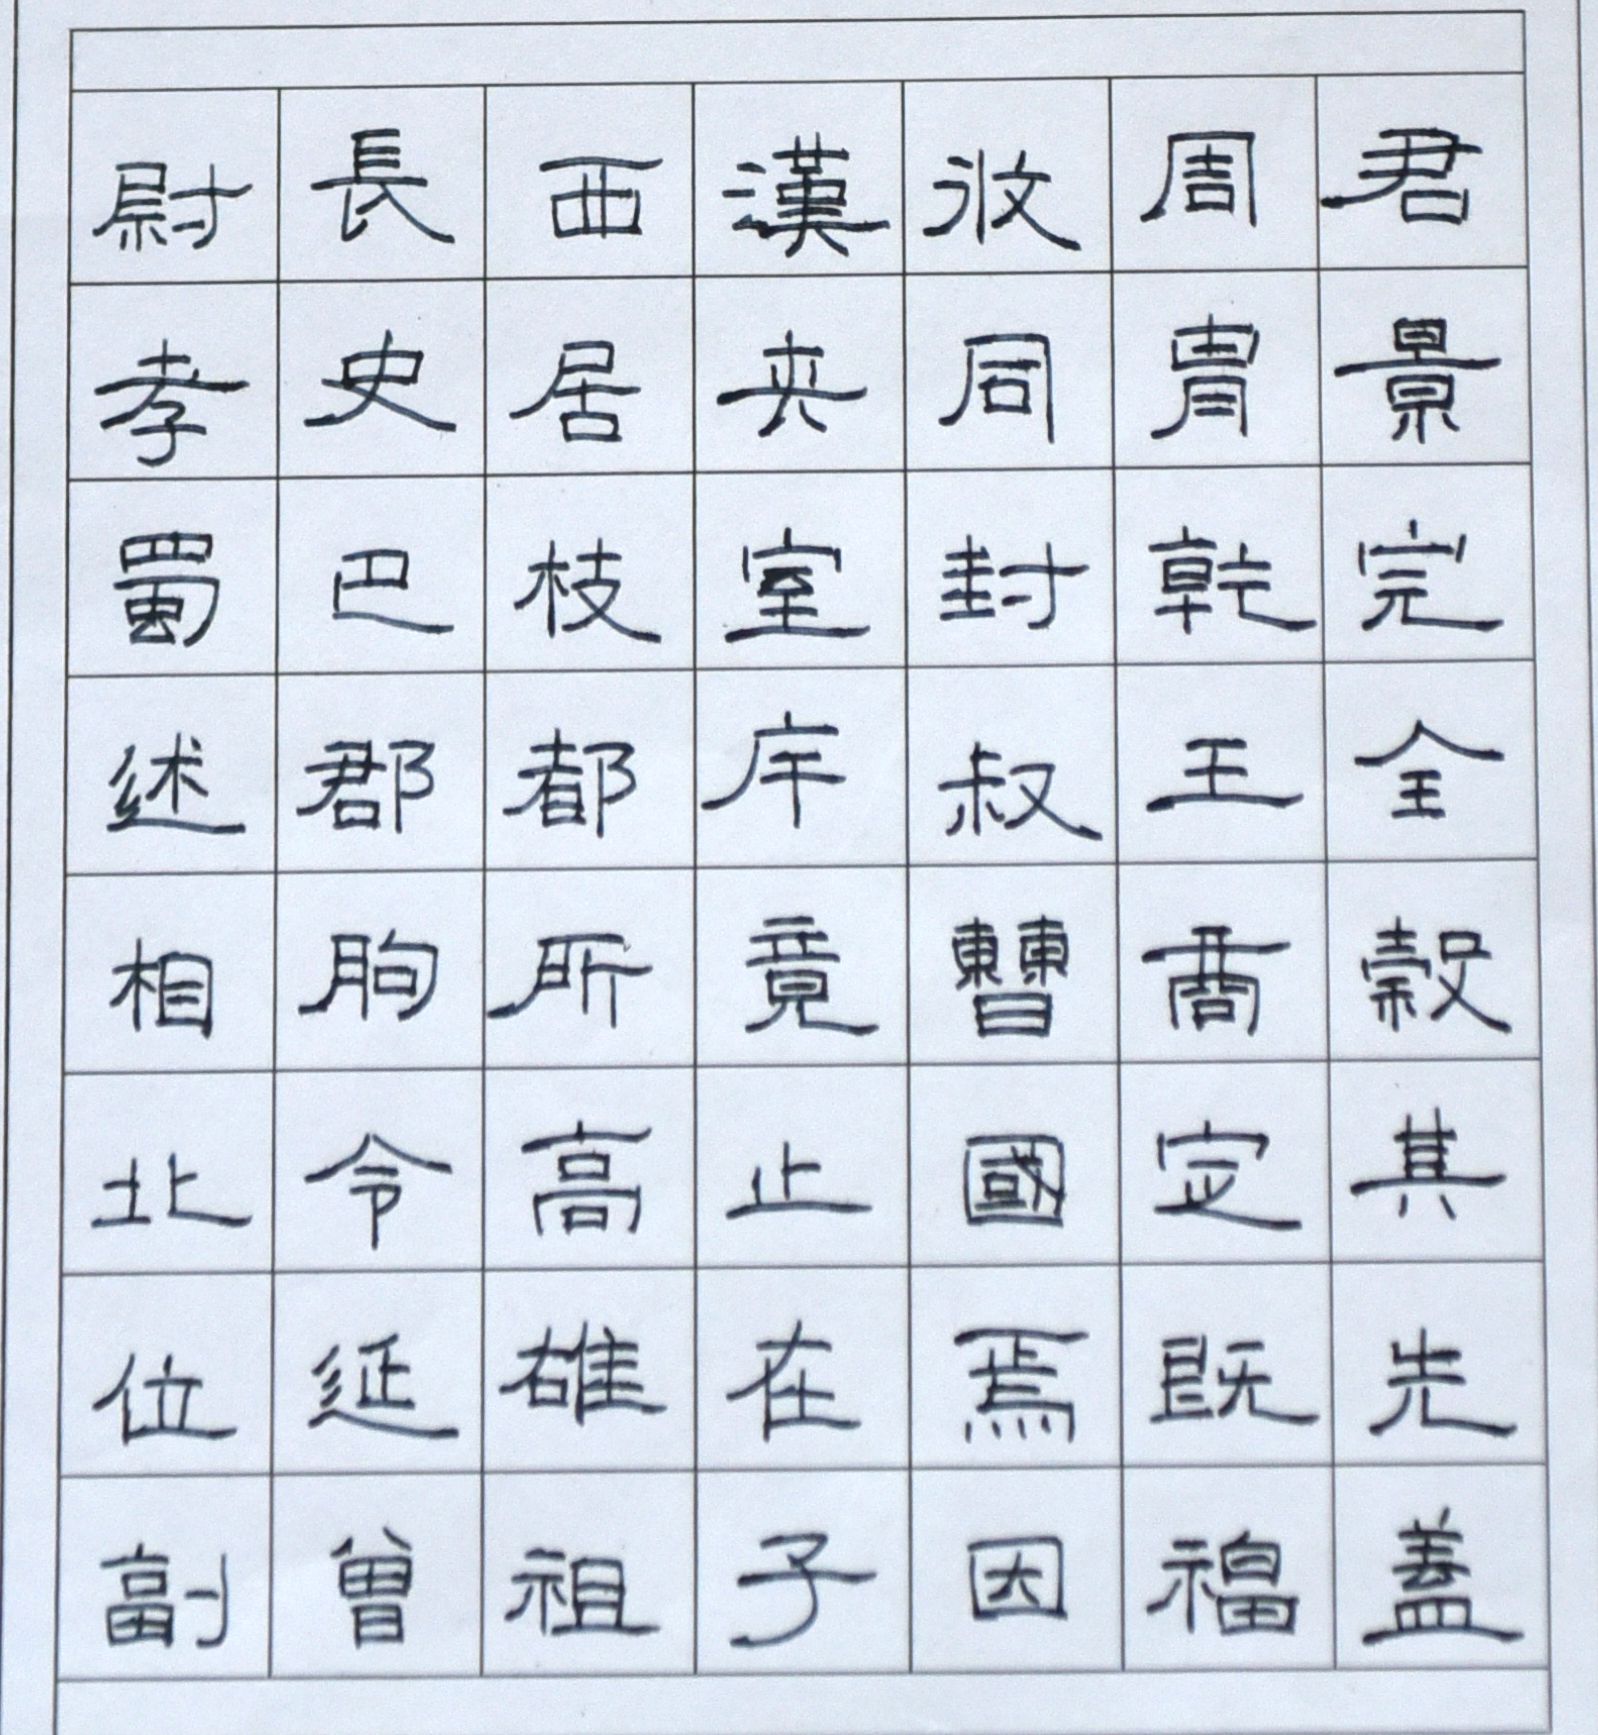 君景完全穀其先蓋
周胄乾王商定既福
攸同封叔曹國焉因
漢夾室斥竟止在子
西居枝都所高雄祖
長史巴郡朐令延曾
尉孝蜀述相北位副